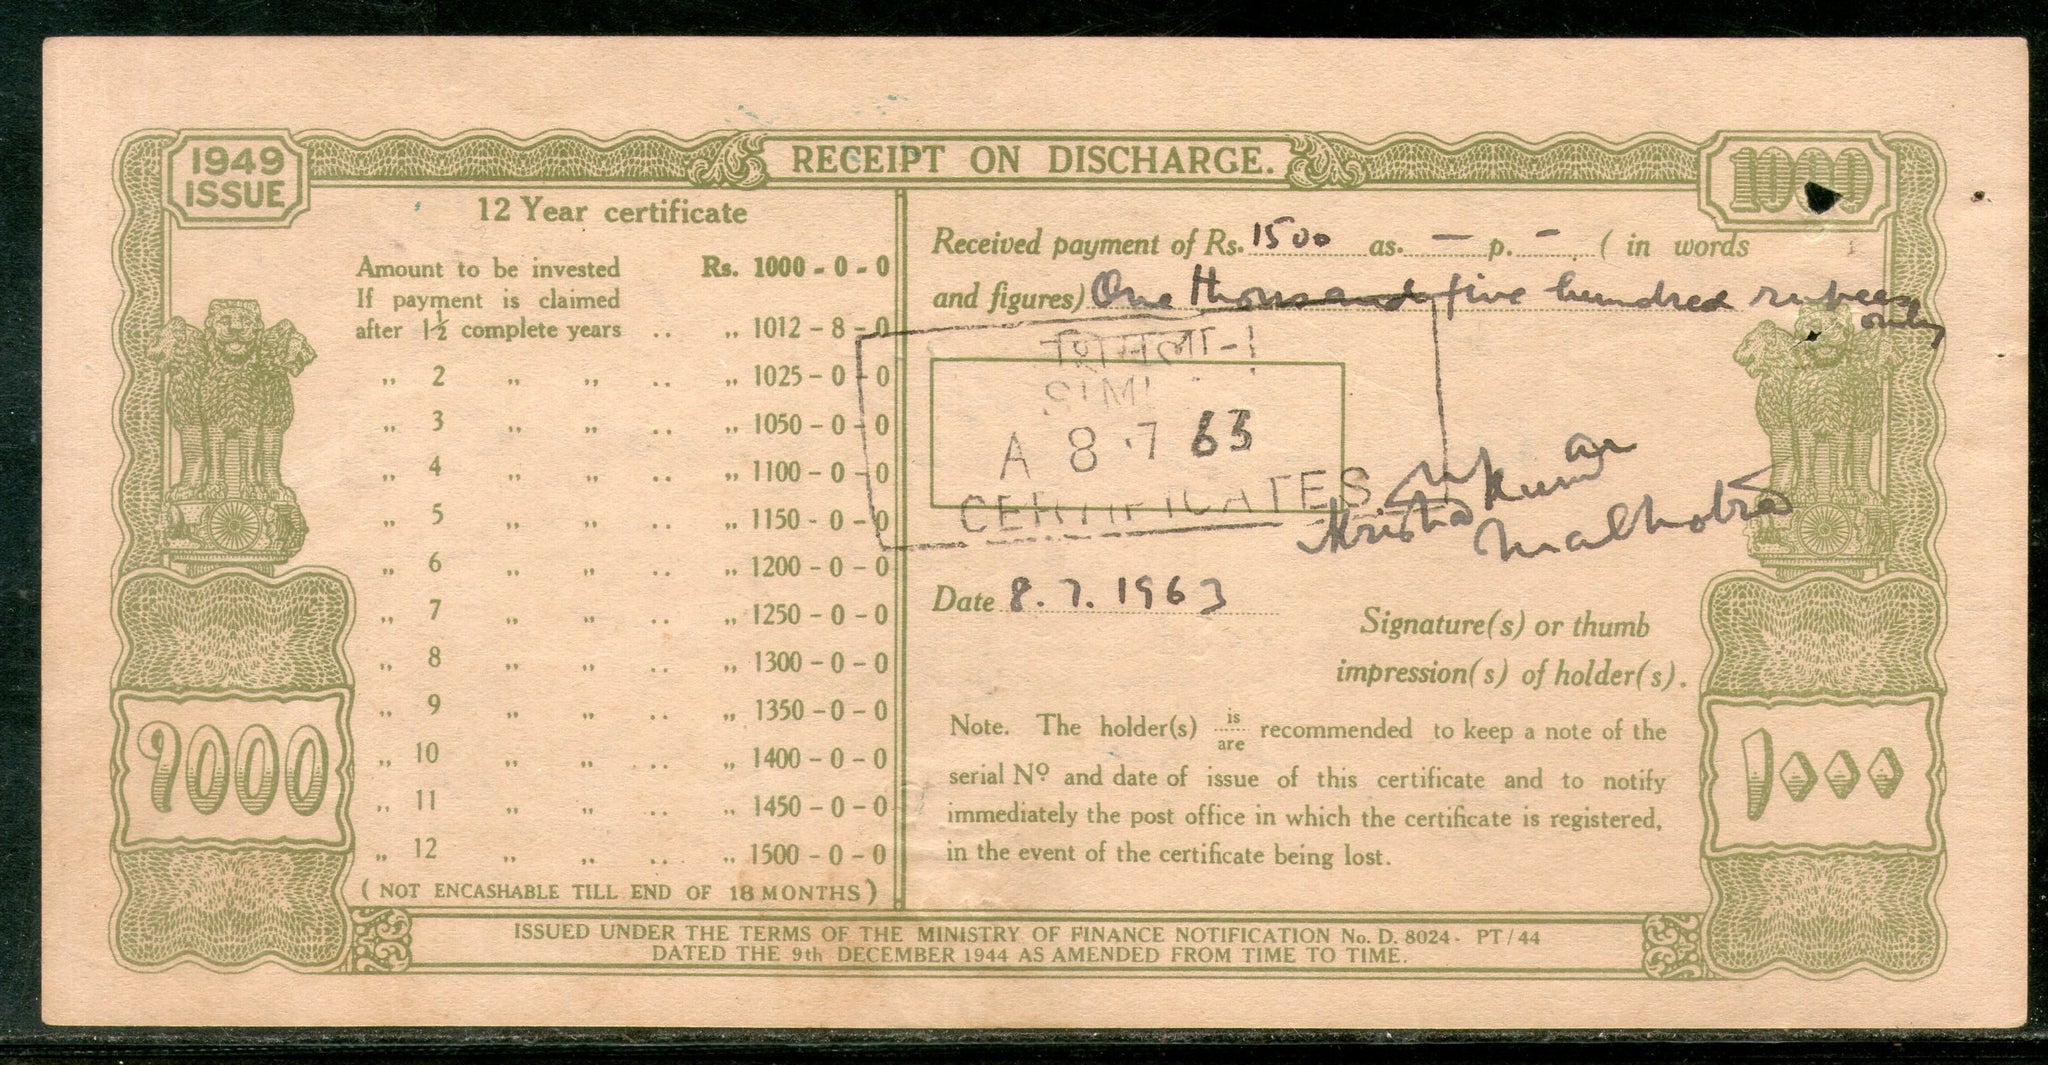 1949
ISSUE
RECEIPT ON DISCHARGE.
1000
12 Year certificate
Amount to be invested Rs. 1000 - 0 - 0
If payment is claimed
after 1½ complete years .. ,, 1012 - 8 - 0
,, 2 ,, ,, .. ,, 1025 - 0 - 0
,, 3 ,, ,, .. ,, 1050 - 0 - 0
,, 4 ,, ,, .. ,, 1100 - 0 - 0
,, 5 ,, ,, .. ,, 1150 - 0 - 0
,, 6 ,, ,, .. ,, 1200 - 0 - 0
,, 7 ,, ,, .. ,, 1250 - 0 - 0
,, 8 ,, ,, .. ,, 1300 - 0 - 0
,, 9 ,, ,, .. ,, 1350 - 0 - 0
,, 10 ,, ,, .. ,, 1400 - 0 - 0
,, 11 ,, ,, .. ,, 1450 - 0 - 0
,, 12 ,, ,, .. ,, 1500 - 0 - 0
(NOT ENCASHABLE TILL END OF 18 MONTHS)
Received payment of Rs. 1500 as. — p. - ( in words
and figures) One thousand five hundred rupees
only
शिमला-1
SIM
A 8 .7 63
CERTIFICATES
Krishan Kumar
Malhotra
Date 8.7.1963
Signature(s) or thumb
impression(s) of holder(s).
Note. The holder(s) is/are recommended to keep a note of the
serial Nº and date of issue of this certificate and to notify
immediately the post office in which the certificate is registered,
in the event of the certificate being lost.
१०००
۱۰۰۰
ISSUED UNDER THE TERMS OF THE MINISTRY OF FINANCE NOTIFICATION No. D. 8024- PT/44
DATED THE 9th DECEMBER 1944 AS AMENDED FROM TIME TO TIME.